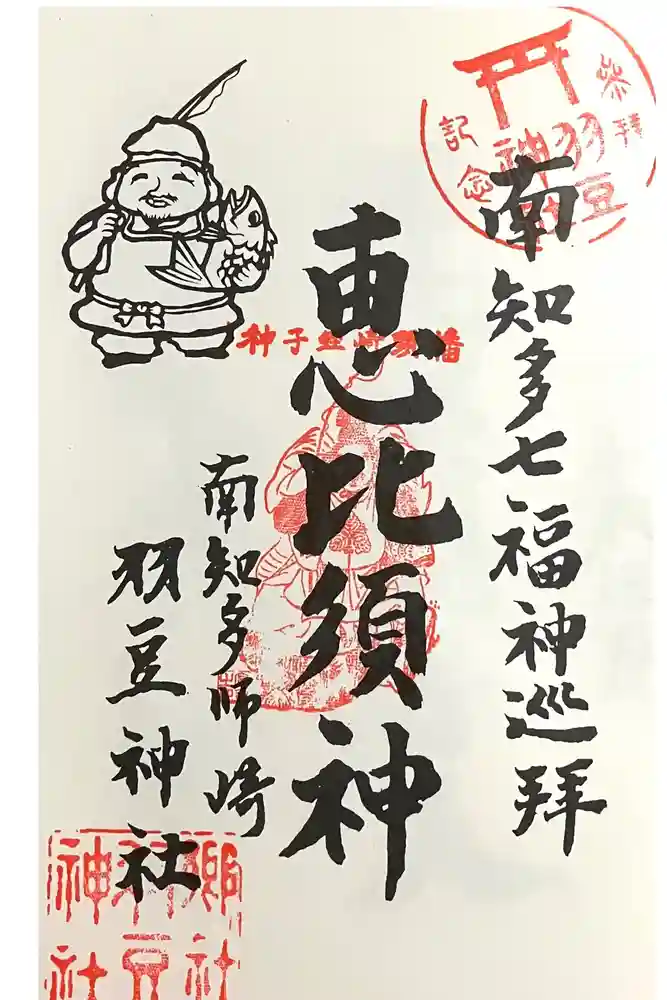 南知多七福神巡拝
参拝記念
羽豆神社
恵比須神
南知多師崎
羽豆神社
郷社
羽豆
神社